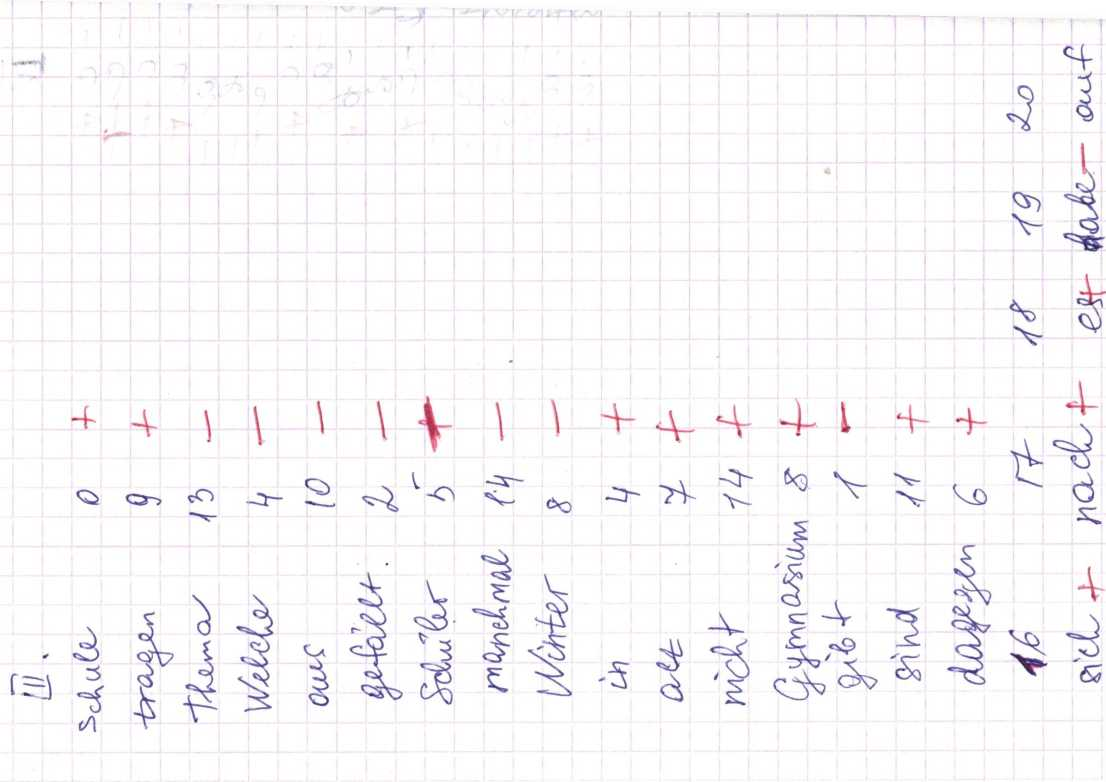 III.
Schule 0 +
tragen 9 +
Thema 13 –
Welche 4 –
aus 10 –
gefällt. 2 –
Schüler 5 +
manchmal 14 –
Winter 8 –
in 4 +
alt 7 +
nicht 14 +
Gymnasium 8 +
gibt 1 –
sind 11 +
dagegen 6 +
16 17 18 19 20
sich + nach + es+ habe – auf